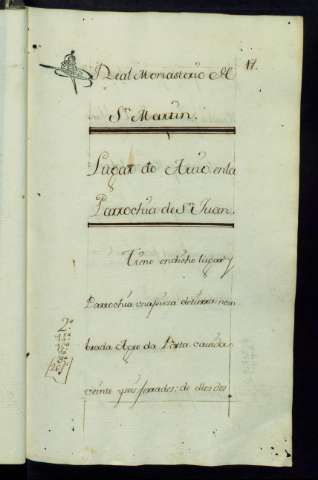 Real Monasterio de
17.
Sn. Martin.
Lugar de en la
Parrochia de Sn. Juan.
Tiene en dicho lugar y
Parrochia una pieza de tierra nom
brada Agro da Porta
veinte y seis ferrados: de ellos dos